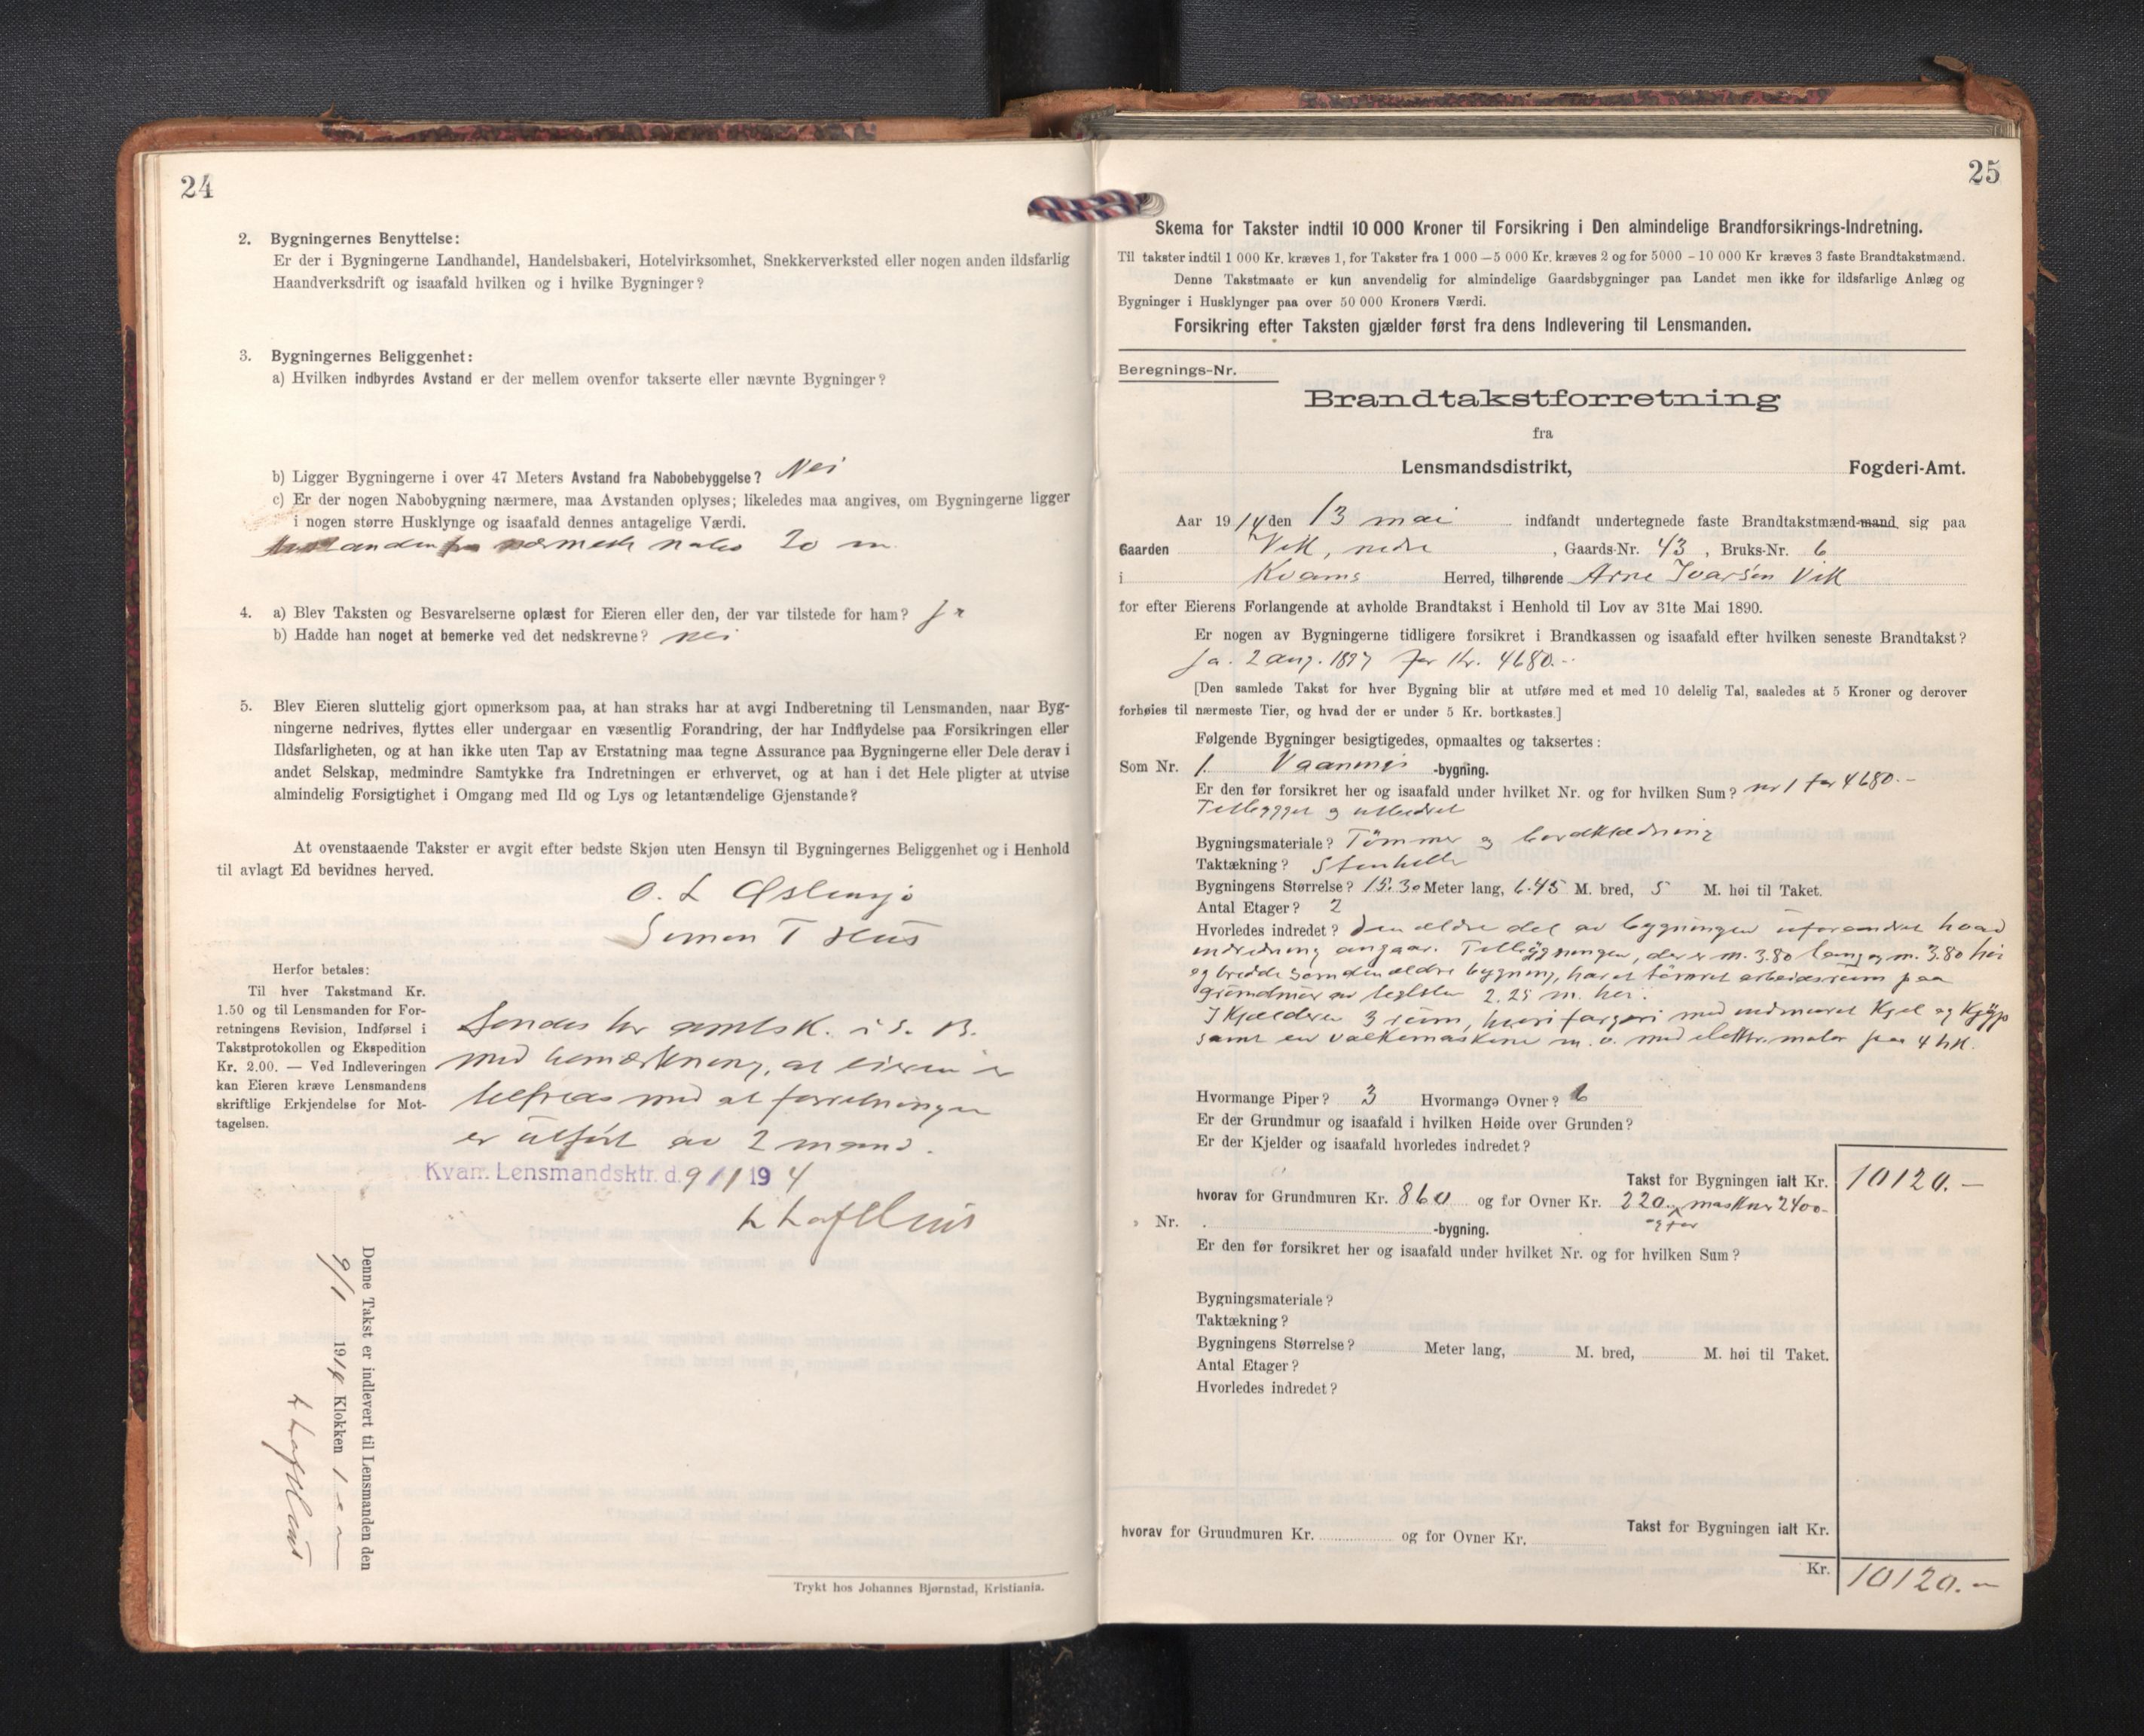 24
2. Bygningernes Benyttelse:
Er der i Bygningerne Landhandel, Handelsbakeri, Hotelvirksomhet, Snekkerverksted eller nogen anden ildsfarlig
Haandverksdrift og isaafald hvilken og i hvilke Bygninger?
3. Bygningernes Beliggenhet:
a) Hvilken indbyrdes Avstand er der mellem ovenfor takserte eller nævnte Bygninger?
b) Ligger Bygningerne i over 47 Meters Avstand fra Nabobebyggelse? Nei
c) Er der nogen Nabobygning nærmere, maa Avstanden oplyses; likeledes maa angives, om Bygningerne ligger
i nogen større Husklynge og isaafald dennes antagelige Værdi.
nærmeste nabo 20 m
4. a) Blev Taksten og Besvarelserne oplæst for Eieren eller den, der var tilstede for ham? Ja
b) Hadde han noget at bemerke ved det nedskrevne? nei
5. Blev Eieren sluttelig gjort opmerksom paa, at han straks har at avgi Indberetning til Lensmanden, naar Byg-
ningerne nedrives, flyttes eller undergaar en væsentlig Forandring, der har Indflydelse paa Forsikringen eller
Ildsfarligheten, og at han ikke uten Tap av Erstatning maa tegne Assurance paa Bygningerne eller Dele derav i
andet Selskap, medmindre Samtykke fra Indretningen er erhvervet, og at han i det Hele pligter at utvise
almindelig Forsigtighet i Omgang med Ild og Lys og letantændelige Gjenstande?
At ovenstaaende Takster er avgit efter bedste Skjøn uten Hensyn til Bygningernes Beliggenhet og i Henhold
til avlagt Ed bevidnes herved.
O. L Østensjø
Simon T Hus
Herfor betales:
Til hver Takstmand Kr.
1.50 og til Lensmanden for For-
retningens Revision, Indførsel i
Takstprotokollen og Ekspedition
Kr. 2.00. — Ved Indleveringen
kan Eieren kræve Lensmandens
skriftlige Erkjendelse for Mot-
tagelsen.
Sendes hr amtsk. i S. B.
med bemærkning, at eieren er
tilfreds med at forretningen
er utført av 2 mænd.
Kvam Lensmandsktr. d. 9/1 1914
Denne Takst er indlevert til Lensmanden den
9/1 1914 Klokken 1
Trykt hos Johannes Bjørnstad, Kristiania.
25
Skema for Takster indtil 10 000 Kroner til Forsikring i Den almindelige Brandforsikrings-Indretning.
Til takster indtil 1 000 Kr. kræves 1, for Takster fra 1 000—5 000 Kr. kræves 2 og for 5000 - 10 000 Kr kræves 3 faste Brandtakstmænd.
Denne Takstmaate er kun anvendelig for almindelige Gaardsbygninger paa Landet men ikke for ildsfarlige Anlæg og
Bygninger i Husklynger paa over 50 000 Kroners Værdi.
Forsikring efter Taksten gjælder først fra dens Indlevering til Lensmanden.
Beregnings-Nr.
Brandtakstforretning
fra
Lensmandsdistrikt, Fogderi-Amt.
Aar 1914 den 13 mai indfandt undertegnede faste Brandtakstmænd-mand sig paa
Gaarden Vik, nedre, Gaards-Nr. 43, Bruks-Nr. 6
i Kvams Herred, tilhørende Arne Ivarsen Vik
for efter Eierens Forlangende at avholde Brandtakst i Henhold til Lov av 31te Mai 1890.
Er nogen av Bygningerne tidligere forsikret i Brandkassen og isaafald efter hvilken seneste Brandtakst?
Ja. 2 aug. 1897 for Kr. 4680.-
[Den samlede Takst for hver Bygning blir at utføre med et med 10 delelig Tal, saaledes at 5 Kroner og derover
forhøies til nærmeste Tier, og hvad der er under 5 Kr. bortkastes.]
Følgende Bygninger besigtigedes, opmaaltes og taksertes:
Som Nr. 1. Vaanings -bygning.
Er den før forsikret her og isaafald under hvilket Nr. og for hvilken Sum? nr 1 for 4680.-
Tilbygget og utbedret
Bygningsmateriale? Tømmer og bordklædning
Taktækning? Stenheller
Bygningens Størrelse? 15.30 Meter lang, 6.45 M. bred, 5 M. høi til Taket.
Antal Etager? 2
Hvorledes indredet? Den ældre del av bygningen uforandret hvad
indredning angaar. Tilbygningen, der er m. 3.80 lang og m. 3.80 høi
og bredde som den ældre bygning, har et tømret arbeidsrum paa
grundmur av teglsten 2.25 m. høi.
I Kjælderen 3 rum, hvori farveri med indmuret Kjel og Kyp
samt en valkemaskine m. v. med elektr. motor paa 4 hk.
Hvormange Piper? 3 Hvormange Ovner? 6
Er der Grundmur og isaafald i hvilken Høide over Grunden?
Er der Kjelder og isaafald hvorledes indredet?
Takst for Bygningen ialt Kr. 10120.—
hvorav for Grundmuren Kr. 860 og for Ovner Kr. 220.- og for maskiner 2400-
Nr. -bygning.
Er den før forsikret her og isaafald under hvilket Nr. og for hvilken Sum?
Bygningsmateriale?
Taktækning?
Bygningens Størrelse? Meter lang, M. bred, M. høi til Taket.
Antal Etager?
Hvorledes indredet?
Takst for Bygningen ialt Kr.
hvorav for Grundmuren Kr. og for Ovner Kr.
Kr. 10120.—